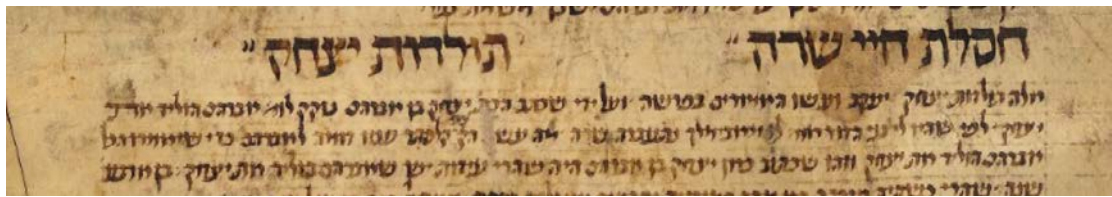 חסלת חיי שרה " תולדות יצחק "
אלה תולדות יצחק יעקב ועשו האמורים בפרשה ועל ידי שכתב הכת' יצחק בן אברהם נזקק לומ' אברהם הוליד את
יצחק לפי שהיו ליצני הדור אומ' מאבימלך נתעברה שרה מה עשה הק' קלסתר פניו דומה לאברהם כדי שיאמרו הכל
אברהם הוליד את יצחק וזהו שכתוב כאן יצחק בן אברהם היה שהרי עדות יש שאברהם הוליד את יצחק בן ארבעי'
שנה שהרי